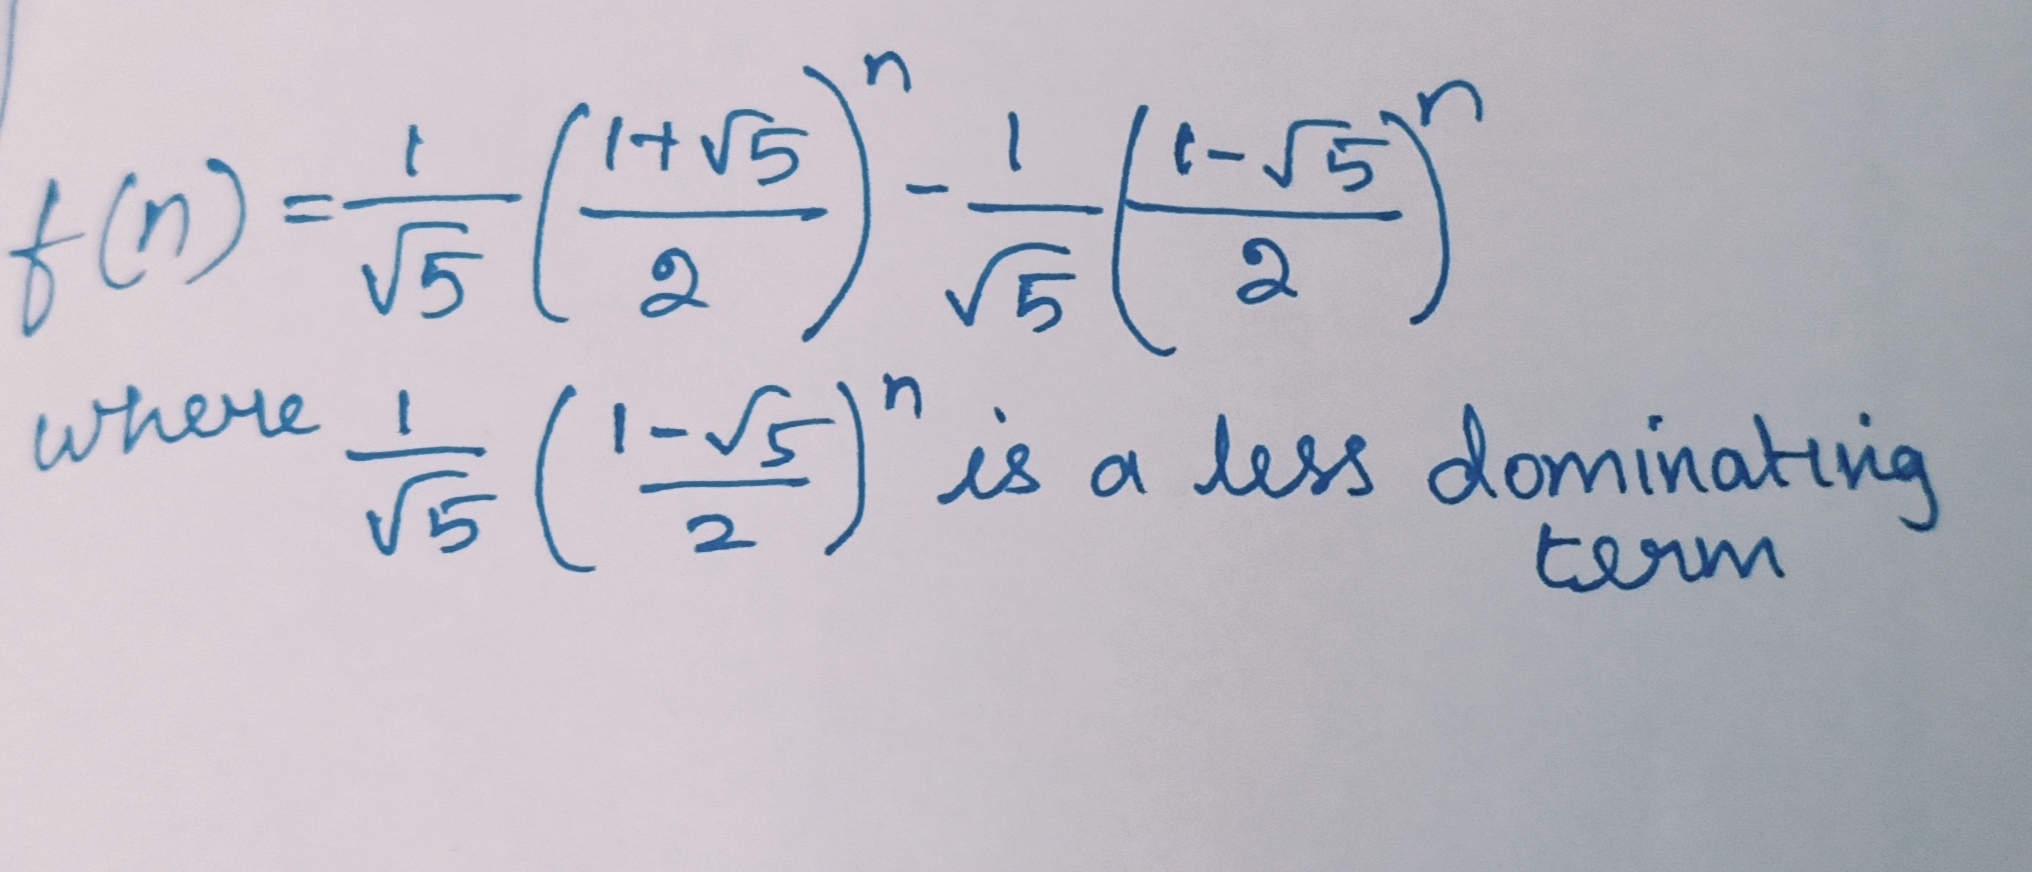 f(n) = 1/√5 ((1+√5)/2)^n - 1/√5 ((1-√5)/2)^n
where 1/√5 ((1-√5)/2)^n is a less dominating
term